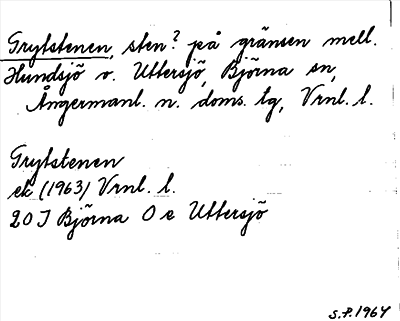 Grytstenen, sten? på gränsen mell.
Hundsjö o. Uttersjö, Björna sn,
Ångermanl. n. doms. tg, Vrnl. l.
Grytstenen
ek (1963) Vrnl. l.
20 J Björna O e Uttersjö
S.P. 1964